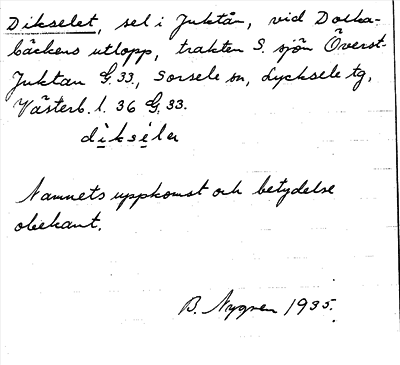 Dikselet, sel i Juktån, vid Dolka-
bäckens utlopp, trakten S. sjön Överst-
Juktan G.33., Sorsele sn, Lycksele tg,
Västerb. l. 36 G.33.
diksela
Namnets uppkomst och betydelse
obekant.
B. Nygren 1935.